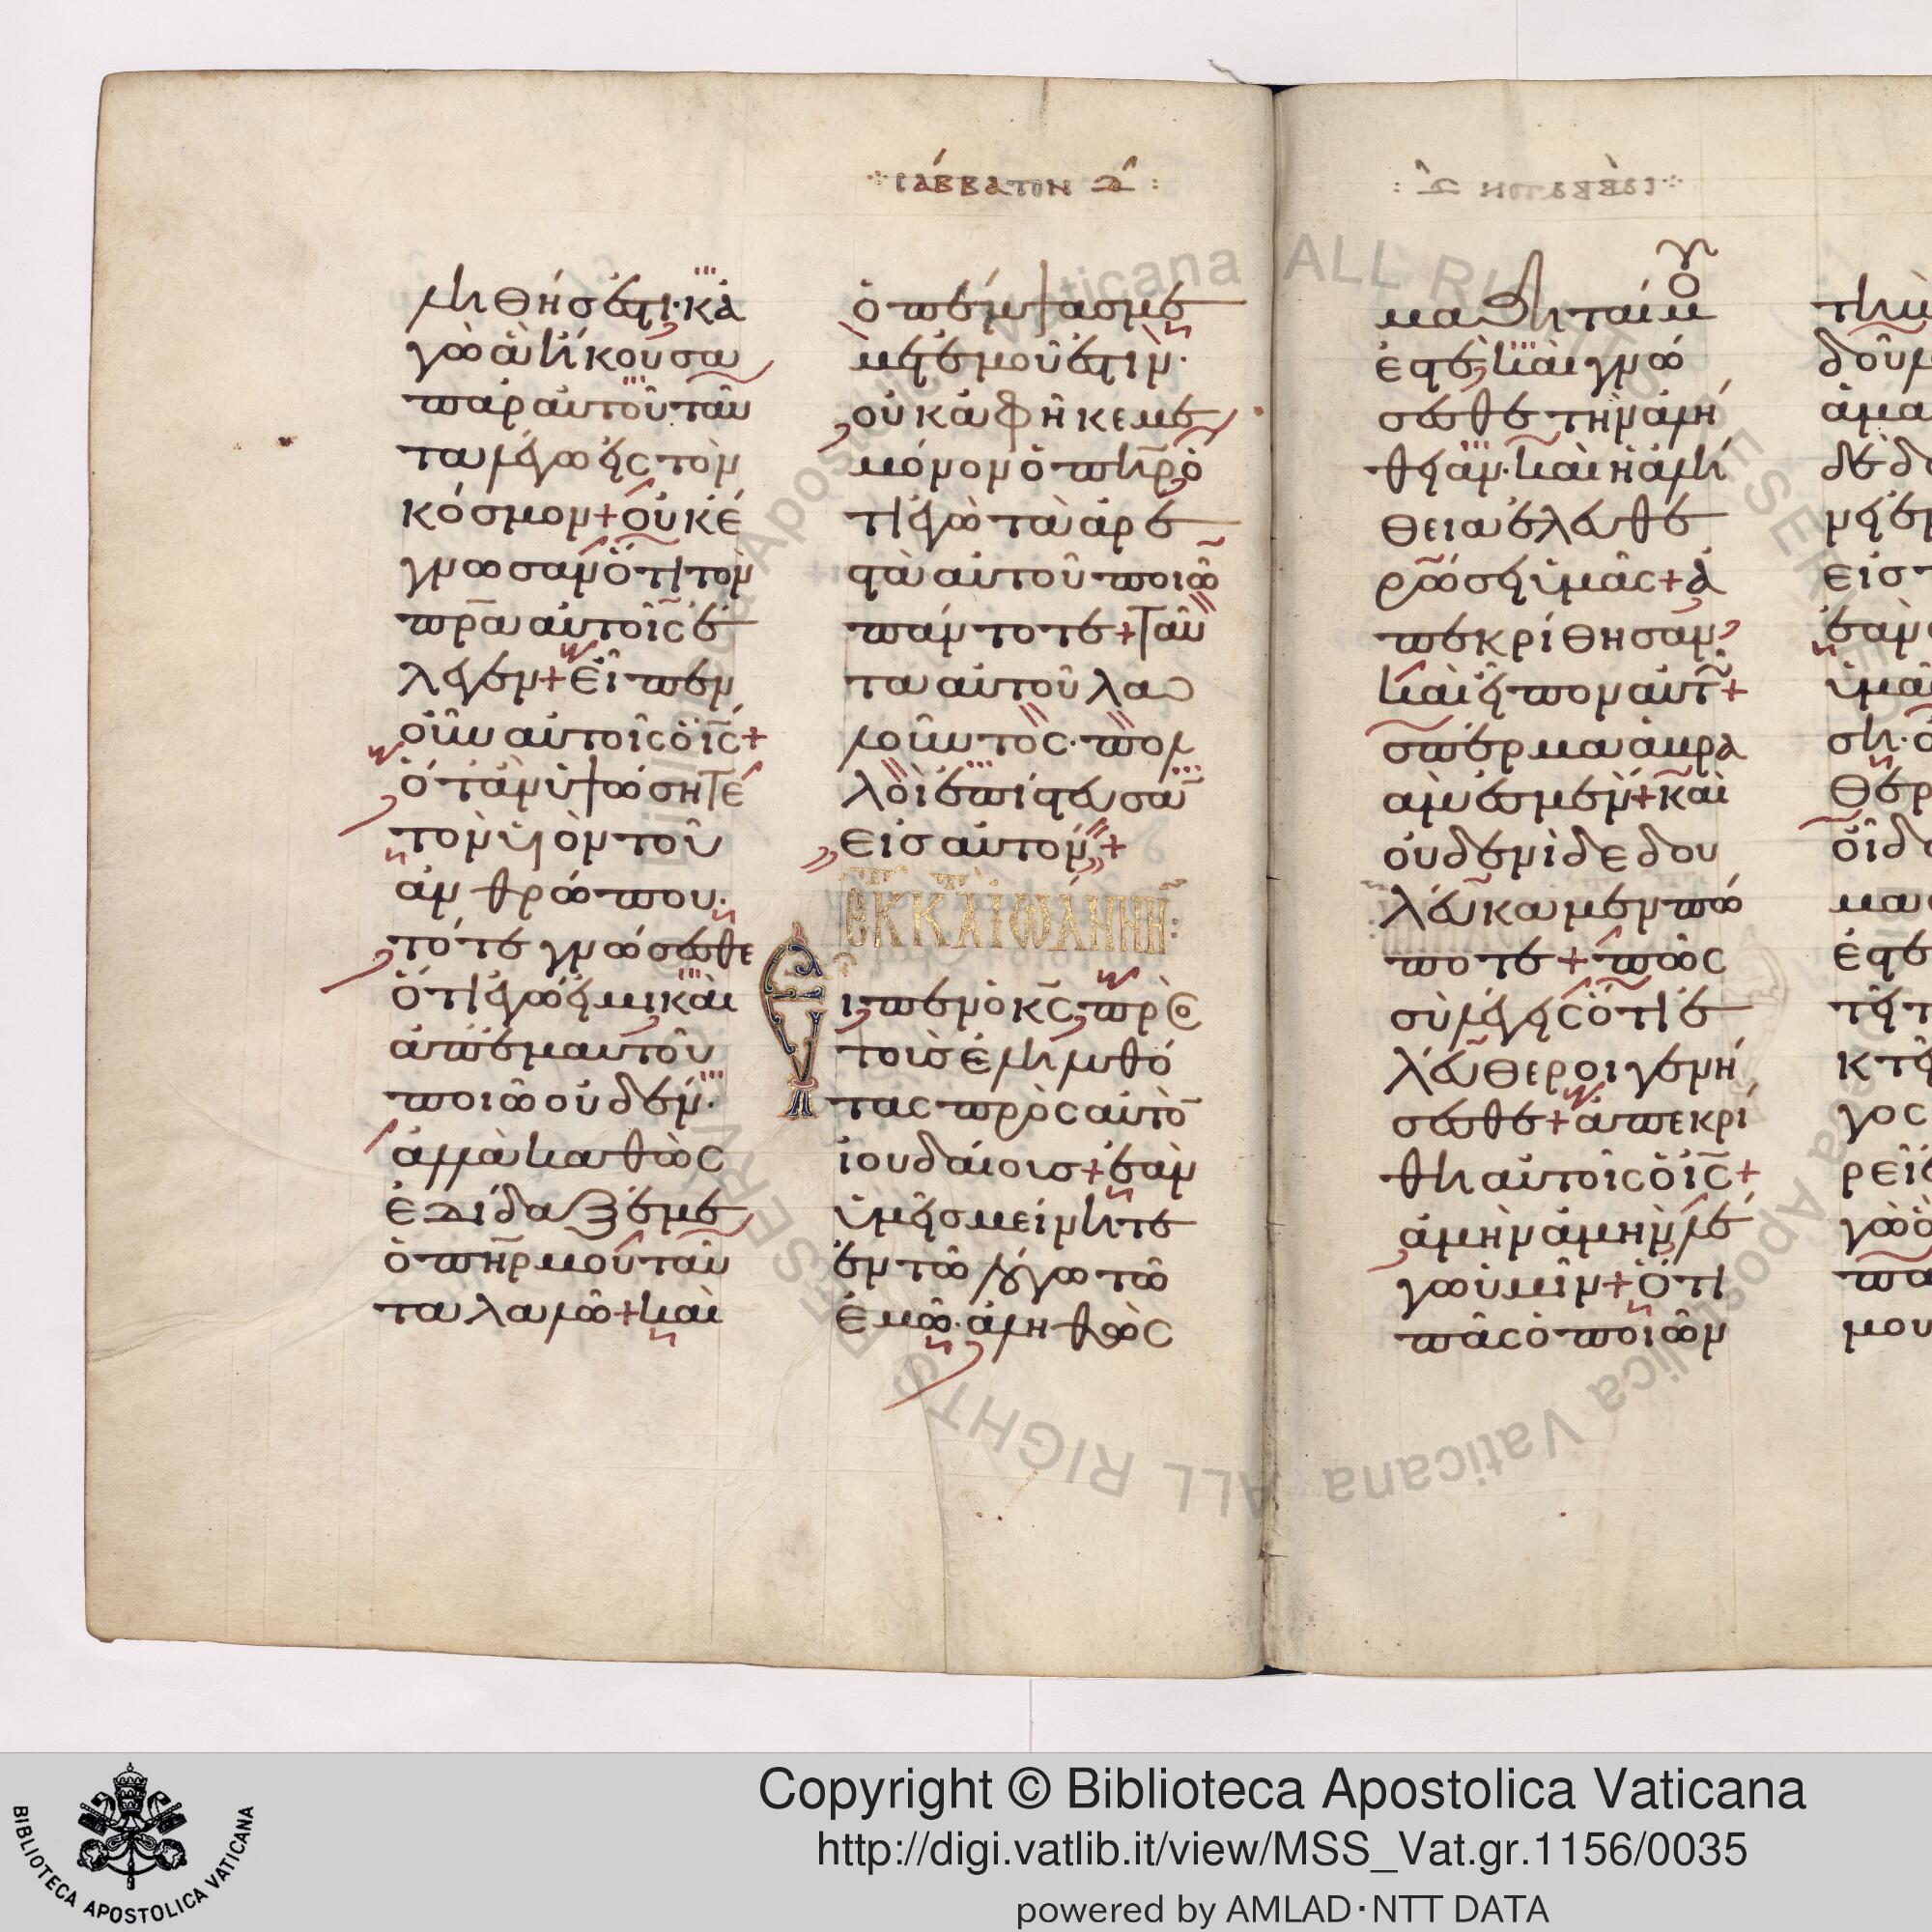 σάββατον δ
ληθής ἐστι· κἀ
γὼ ἃ ἤκουσα
παρ αὐτοῦ ταῦ
τα λέγω εἰς τὸν
κόσμον + οὐκ ἔ
γνωσαν ὅτι τὸν
πρα αὐτοῖς ἔ
λεγεν + εἶπεν
οὖν αὐτοῖς ὁ ις +
ὅταν ὑψώσητε
τὸν υἱὸν τοῦ
ἀνθρώπου.
τότε γνώσεσθε
ὅτι ἐγώ εἰμι καὶ
ἀπ ἐμαυτοῦ
ποιῶ οὐδέν·
ἀλλὰ καθὼς
ἐδίδαξέ με
ὁ πηρ μου ταῦ
τα λαλῶ + καὶ
ὁ πέμψας με
μετ ἐμοῦ ἐστιν·
οὐκ ἀφῆκέ με
μόνον ὁ πηρ ὅ
τι ἐγὼ τὰ ἀρε
στὰ αὐτοῦ ποιῶ
πάντοτε + Ταῦ
τα αὐτοῦ λα
λοῦντος· πολ
λοὶ ἐπίστευσα
εἰς αὐτόν +
ἐκ κατὰ ἰωάννην
Εἶπεν ὁ κς πρὸς
τοὺς ἐληλυθό
τας πρὸς αὐτὸ
ἰουδαίους + ἐὰν
ὑμεῖς μείνητε
ἐν τῷ λόγω τῷ
ἐμῷ· ἀληθῶς
μαθηταί μου
ἐστέ, καὶ γνώ
σεσθε τὴν ἀλή
θειαν· καὶ ἡ ἀλή
θεια ἐλευθε
ρώσει ὑμᾶς + ἀ
πεκρίθησαν
καὶ εἶπον αὐτῶ +
σπέρμα ἀβρα
άμ ἐσμέν + καὶ
οὐδενὶ δεδου
λεύκαμεν πώ
ποτε + πῶς
σὺ λέγεις ὅτι ἐ
λεύθεροι γενή
σεσθε + ἀπεκρί
θη αὐτοῖς ὁ ις +
ἀμὴν ἀμὴν λέ
γω ὑμῖν + ὅτι
πᾶς ὁ ποιῶν
Copyright © Biblioteca Apostolica Vaticana
http://digi.vatlib.it/view/MSS_Vat.gr.1156/0035
powered by AMLAD·NTT DATA
BIBLIOTECA APOSTOLICA VATICANA